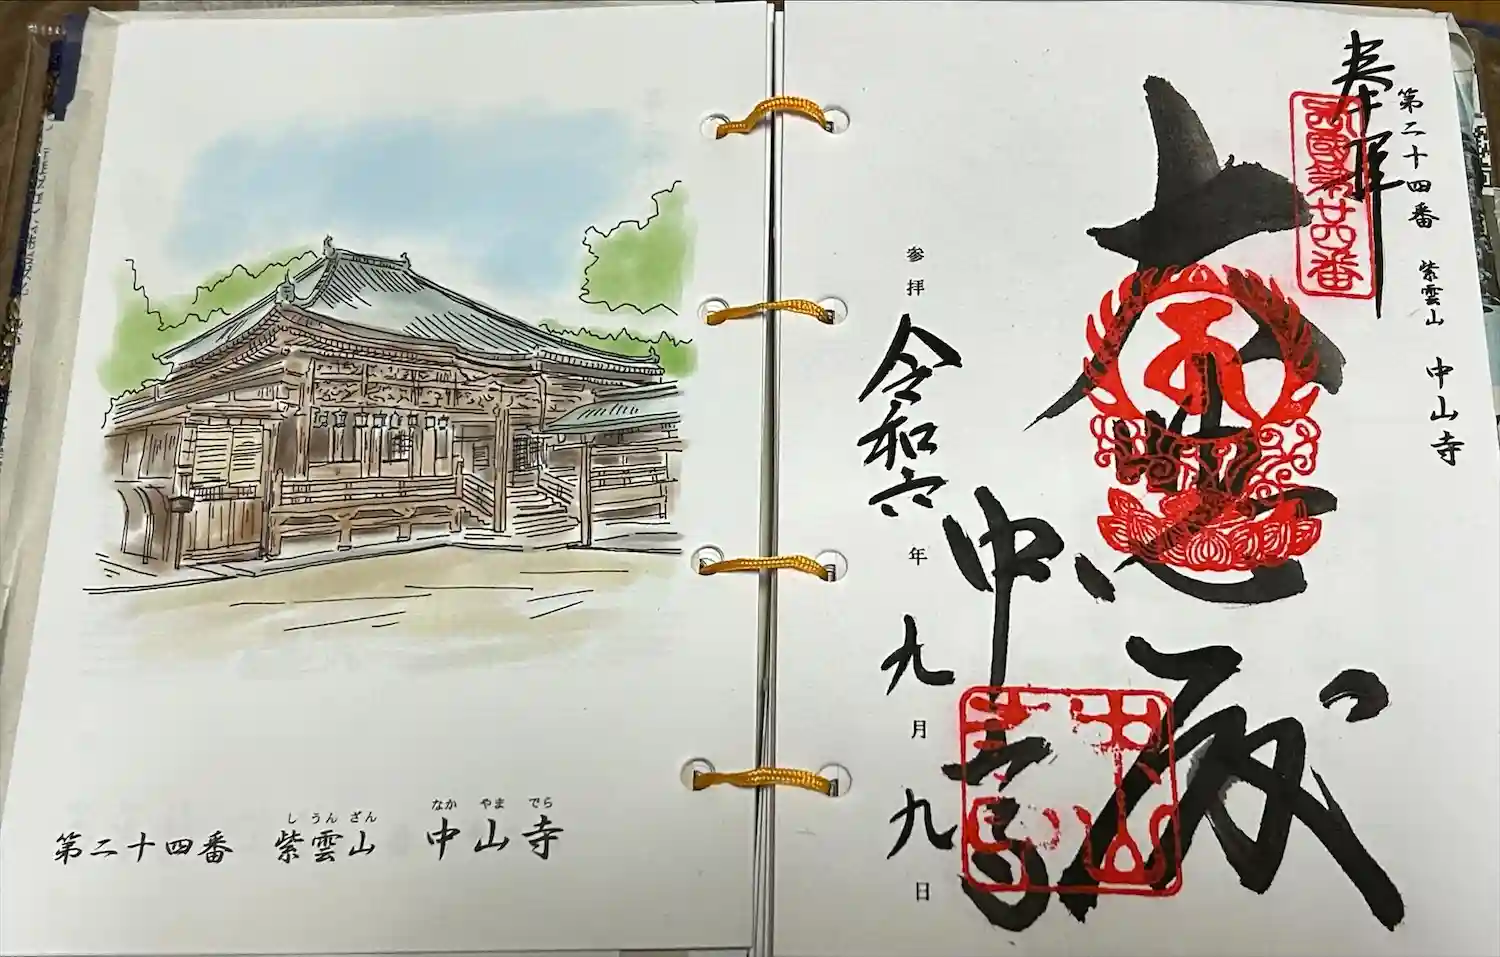 第二十四番 紫雲山 中山寺
し うん ざん
なか やま でら
奉拝
第二十四番 紫雲山 中山寺
西國第廿四番
大悲殿
中山寺
中山寺
参拝 令和六年 九月 九日